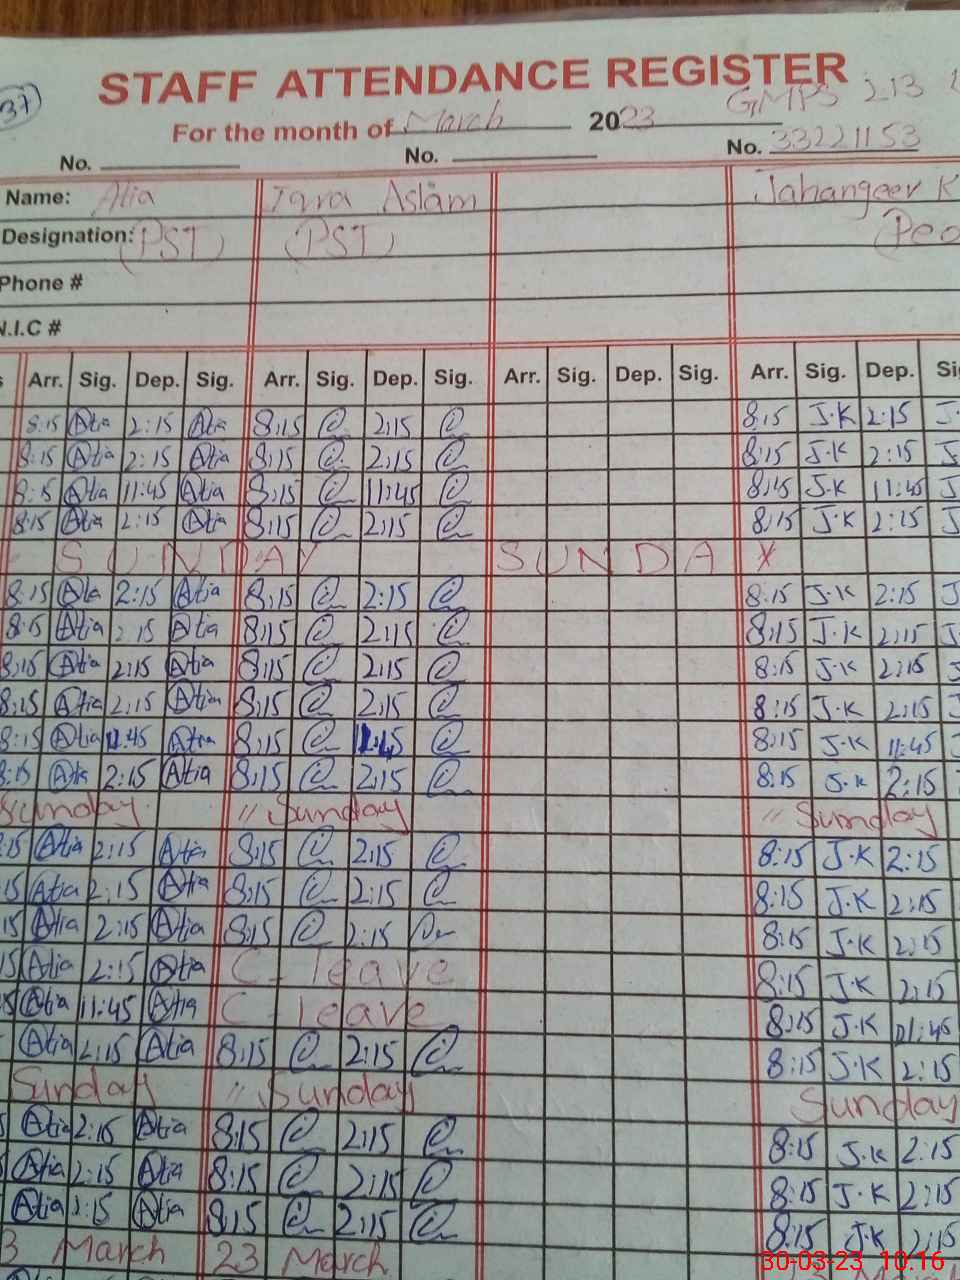 37
STAFF ATTENDANCE REGISTER
GMPS 213
For the month of March 2023
No. No. No. 33221153
Name: Atia Iqra Aslam Jahangeer K
Designation: (PST) (PST) (Peo
Phone #
N.I.C #
s Arr. Sig. Dep. Sig. Arr. Sig. Dep. Sig. Arr. Sig. Dep. Sig. Arr. Sig. Dep. Si
8:15 Atia 2:15 Atia 8:15 2:15 8:15 J.K 2:15 J
8:15 Atia 2:15 Atia 8:15 2:15 8:15 J.K 2:15 J
8:15 Atia 11:45 Atia 8:15 11:45 8:15 J.K 11:45 J
8:15 Atia 2:15 Atia 8:15 2:15 8:15 J.K 2:15 J
SUNDAY SUNDAY
8:15 Atia 2:15 Atia 8:15 2:15 8:15 J.K 2:15 J
8:15 Atia 2:15 Atia 8:15 2:15 8:15 J.K 2:15 J
8:15 Atia 2:15 Atia 8:15 2:15 8:15 J.K 2:15 J
8:15 Atia 2:15 Atia 8:15 2:15 8:15 J.K 2:15 J
8:15 Atia 11:45 Atia 8:15 8:15 J.K 11:45 J
8:15 Atia 2:15 Atia 8:15 2:15 8:15 J.K 2:15
Sunday " Sunday " Sunday
:15 Atia 2:15 Atia 8:15 2:15 8:15 J.K 2:15
15 Atia 2:15 Atia 8:15 2:15 8:15 J.K 2:15
15 Atia 2:15 Atia 8:15 2:15 8:15 J.K 2:15
15 Atia 2:15 Atia C- leave 8:15 J.K 2:15
5 Atia 11:45 Atia C- leave 8:15 J.K 11:45
Atia 2:15 Atia 8:15 2:15 8:15 J.K 2:15
Sunday " Sunday Sunday
Atia 2:15 Atia 8:15 2:15 8:15 J.K 2:15
Atia 2:15 Atia 8:15 2:15 8:15 J.K 2:15
Atia 2:15 Atia 8:15 2:15 8:15 J.K 2:15
3 March 23 March
30-03-23 10:16